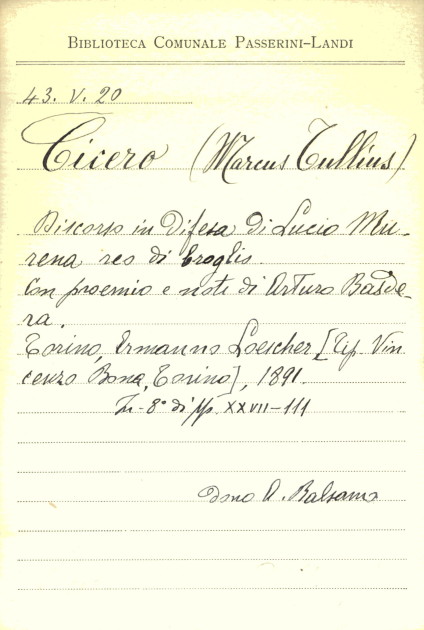 BIBLIOTECA COMUNALE PASSERINI-LANDI
43. V. 20
Cicero (Marcus Tullius)
Discorso in difesa di Lucio Mu-
rena reo di broglio.
Con proemio e note di Arturo Pasde-
ra.
Torino, Ermanno Loescher [Tip. Vin
cenzo Bona, Torino], 1891.
In-8° di pp. XXVII-111
Dono A. Balsamo